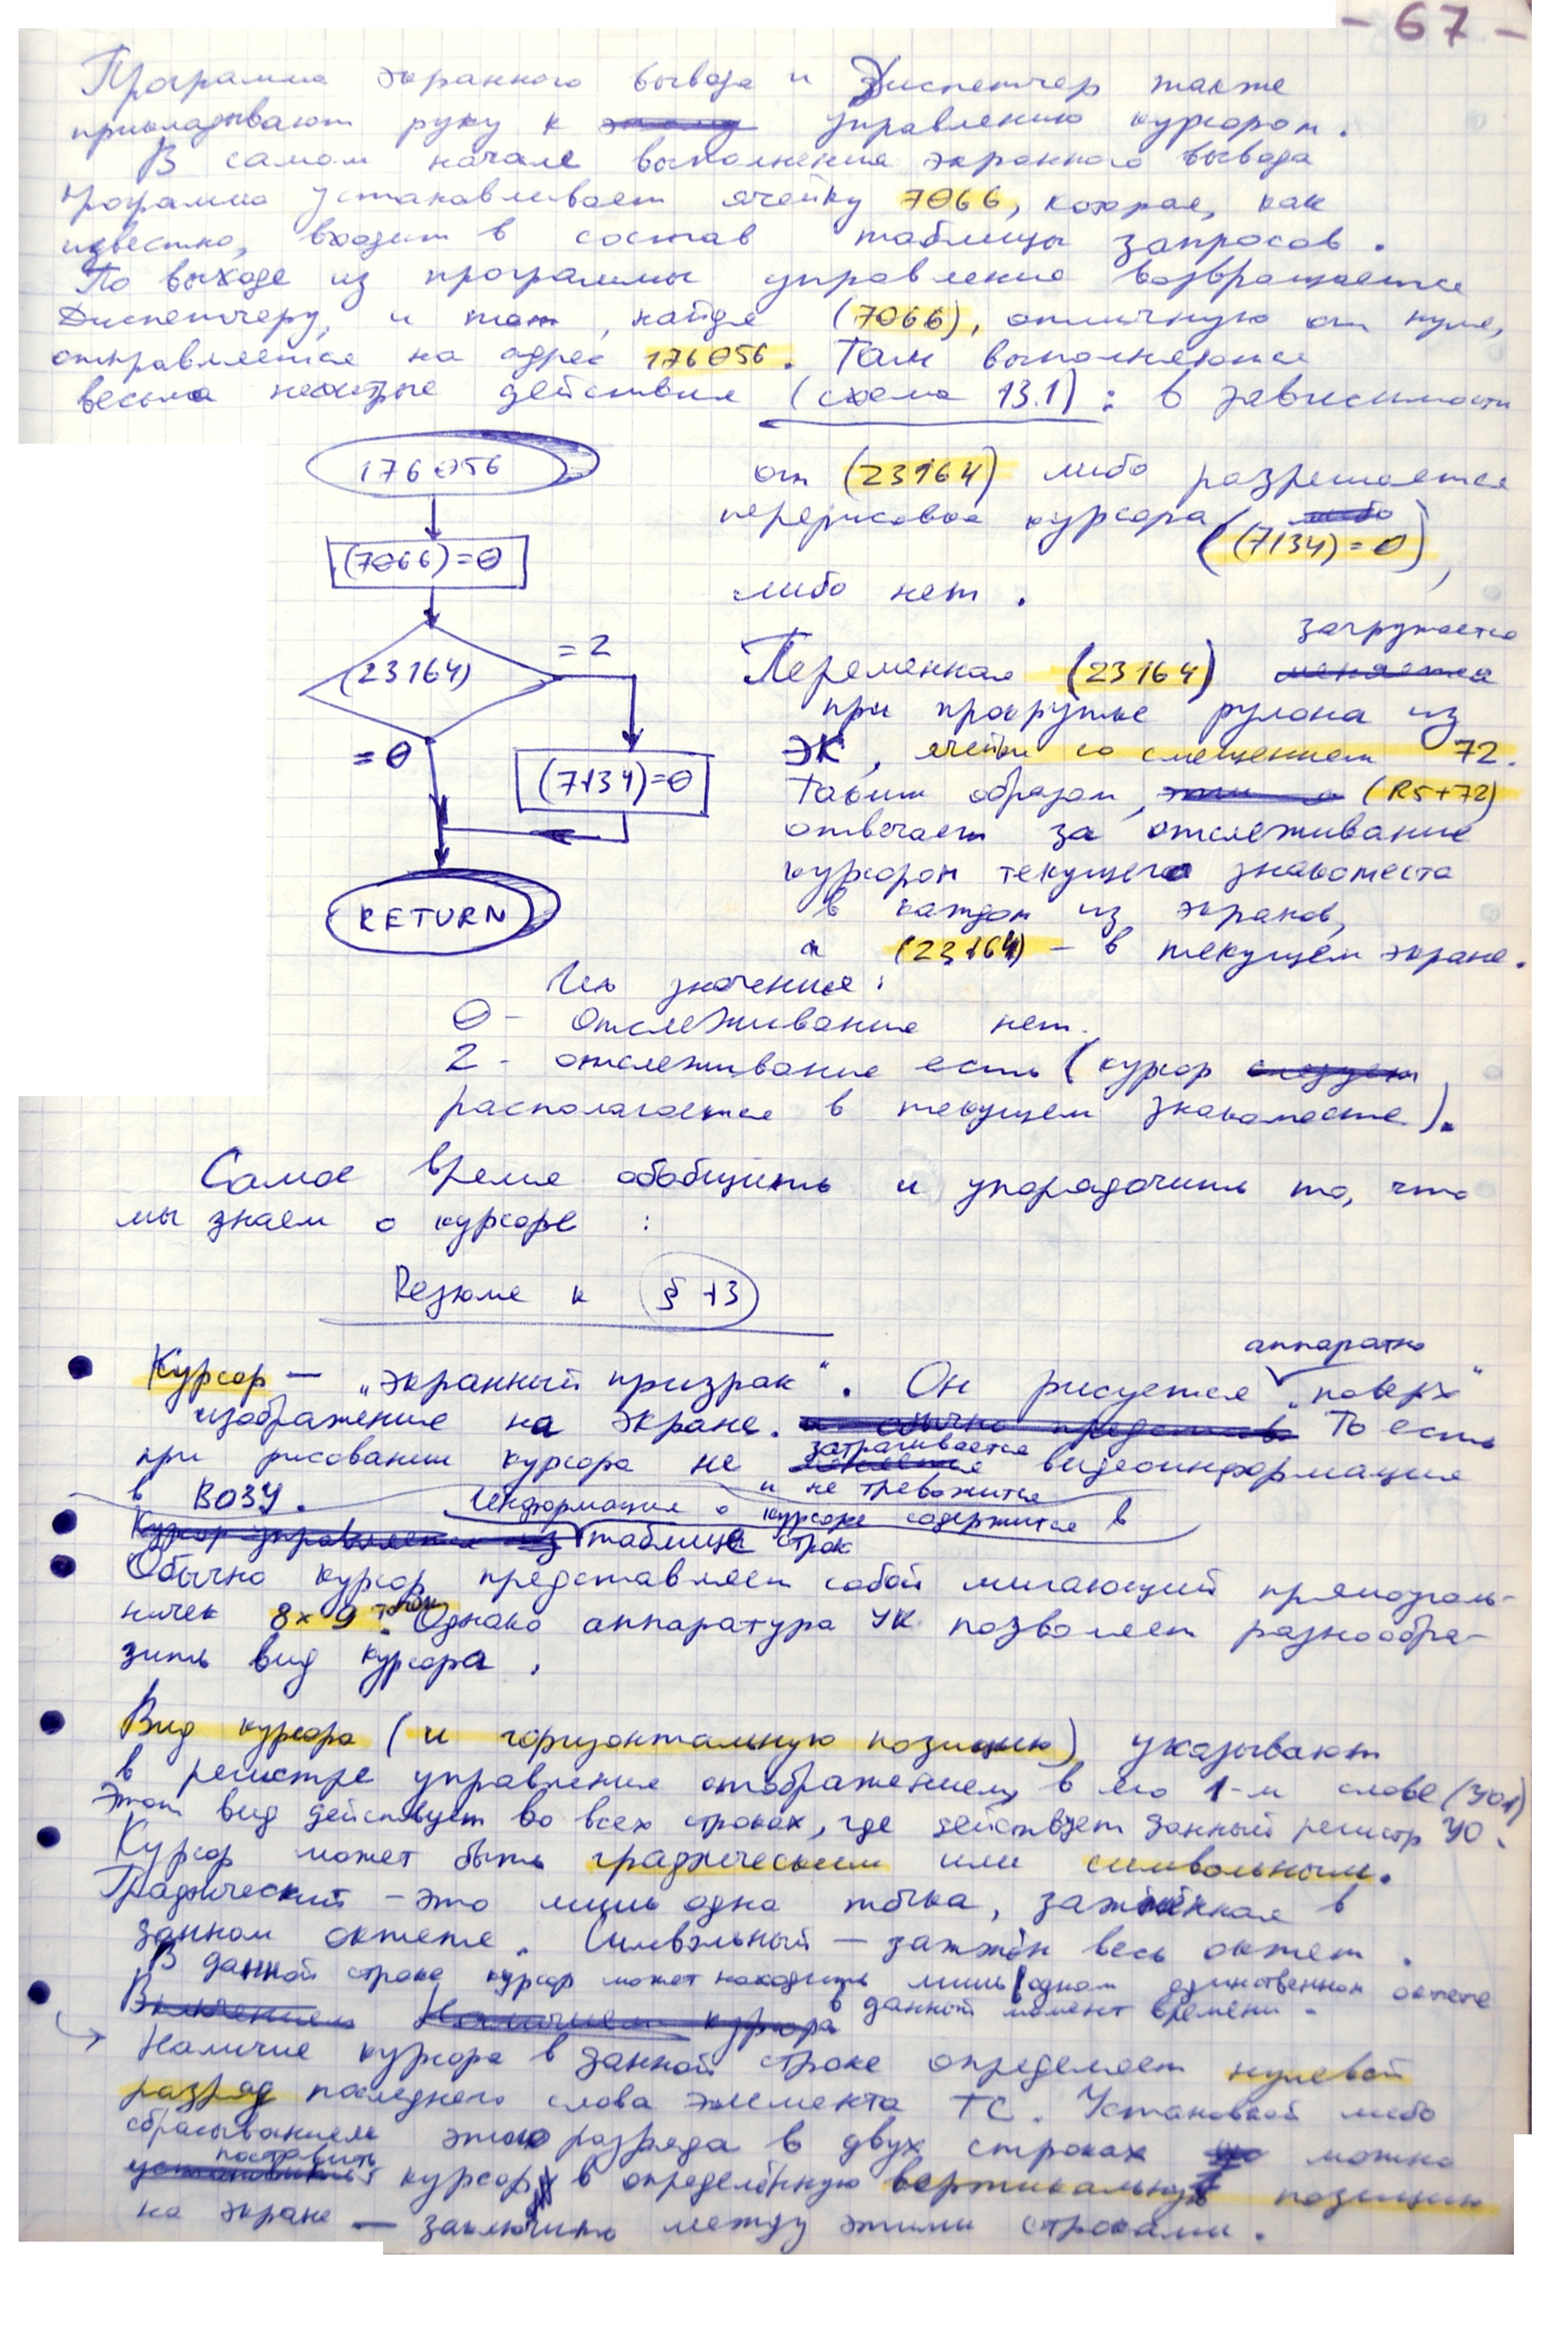 - 67 -
Программа экранного вывода и Диспетчер также
прикладывают руку к этому управлению курсором.
В самом начале выполнения экранного вывода
программа устанавливает ячейку 7066, которая, как
известно, входит в состав таблицы запросов.
По выходе из программы управление возвращается
Диспетчеру, и тот, найдя (7066), отличную от нуля,
отправляется на адрес 176056. Там выполняются
весьма нехитрые действия (схема 13.1): в зависимости
176056
(7066)=0
(23164)
=2
=0
(7134)=0
RETURN
от (23164) либо разрешается
перерисовка курсора либо
((7134)=0),
либо нет.
загружается
Переменная (23164) меняется
при прокрутке рулона из
ЭК, ячейки со смещением 72.
Таким образом, (R5+72)
отвечает за отслеживание
курсором текущего знакоместа
в каждом из экранов,
а (23164) – в текущем экране.
Их значения:
0 - Отслеживания нет.
2 - отслеживание есть (курсор следует
располагается в текущем знакоместе).
Самое время обобщить и упорядочить то, что
мы знаем о курсоре :
Резюме к § 13
аппаратно
Курсор — „экранный призрак“. Он рисуется „поверх“
изображения на экране. и обычно представ То есть
затрагивается
при рисовании курсора не меняется видеоинформация
и не тревожится
в ВОЗУ. Информация о курсоре содержится в
Курсор управляется из таблице строк
Обычно курсор представляет собой мигающий прямоуголь-
ничек 8×9 точек. Однако аппаратура УК позволяет разнообра-
зить вид курсора.
Вид курсора (и горизонтальную позицию) указывают
в регистре управления отображением, в его 1-м слове (УО1)
Этот вид действует во всех строках, где действует данный регистр УО.
Курсор может быть графическим или символьным.
Графический – это лишь одна точка, зажжённая в
данном октете. Символьный — зажжён весь октет.
В данной строке курсор может находиться лишь в одном единственном октете
в данный момент времени.
Включением Наличием курсора
Наличие курсора в данной строке определяет нулевой
разряд последнего слова элемента ТС. Установкой либо
сбрасыванием этого разряда в двух строках можно
поставить
установить курсор в определённую вертикальную позицию
на экране — заключить между этими строками.